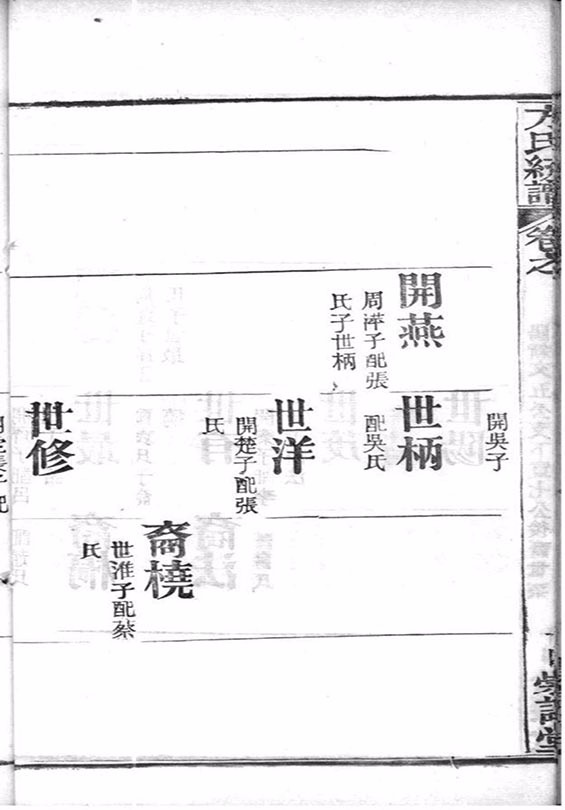 方氏統譜
卷之
開燕
周泮子配張
氏子世柄
開吳子
世柄
配吳氏
世洋
開楚子配張
氏
世修
裔橈
世淮子配蔡
氏